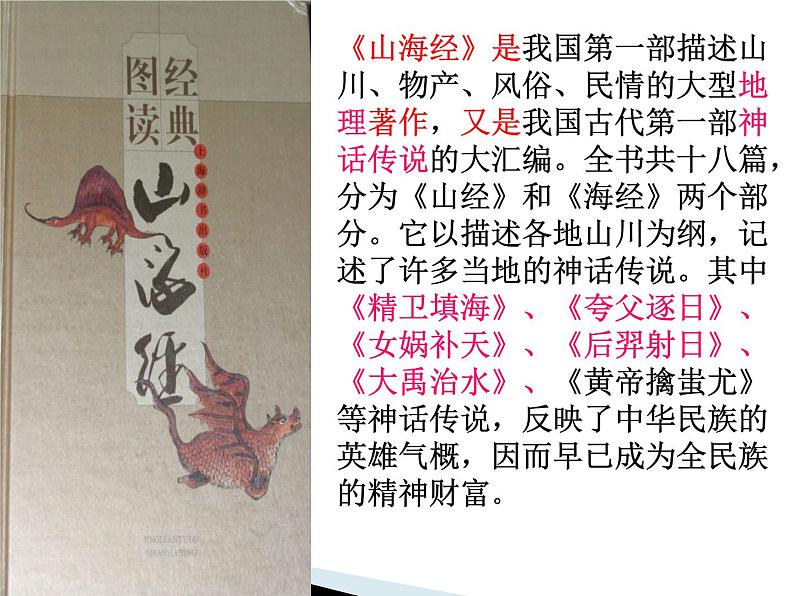 经典
图读
山海经
上海辞书出版社
JINGDIANTUDU
SHANHAIJING
《山海经》是我国第一部描述山
川、物产、风俗、民情的大型地
理著作，又是我国古代第一部神
话传说的大汇编。全书共十八篇，
分为《山经》和《海经》两个部
分。它以描述各地山川为纲，记
述了许多当地的神话传说。其中
《精卫填海》、《夸父逐日》、
《女娲补天》、《后羿射日》、
《大禹治水》、《黄帝擒蚩尤》
等神话传说，反映了中华民族的
英雄气概，因而早已成为全民族
的精神财富。